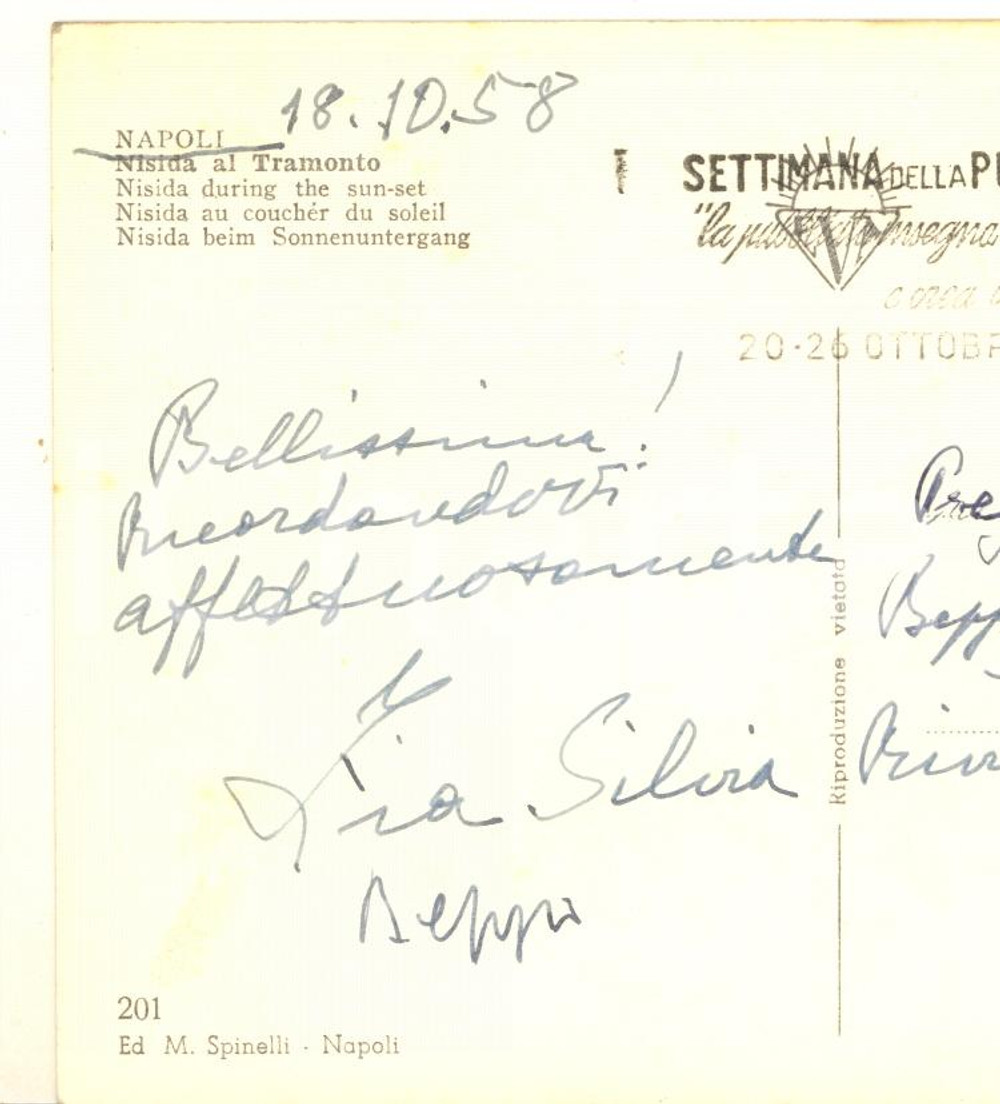 18.10.58
NAPOLI
Nisida al Tramonto
Nisida during the sun-set
Nisida au couchér du soleil
Nisida beim Sonnenuntergang
SETTIMANA DELLA PU
"la pubblicità insegna
20·26 OTTOBR
Bellissima!
ricordandovi
affettuosamente
Zia Silvia
Beppo
Riproduzione vietata
201
Ed M. Spinelli - Napoli